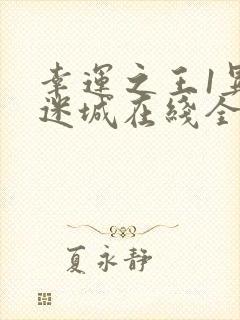 幸運之王1異
迷城在綫全
夏永静